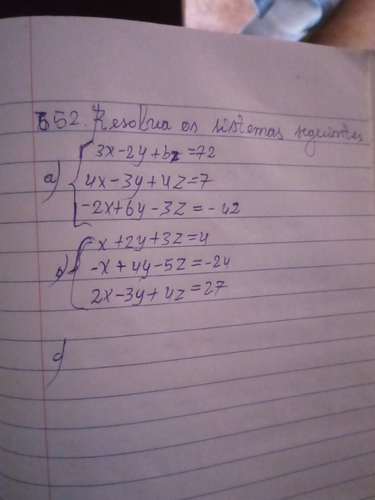 652. Resolva os sistemas seguintes
a) 3x-2y+6z=72
4x-3y+4z=7
-2x+6y-3z=-42
b) -x+2y+3z=4
-x+4y-5z=-24
2x-3y+4z=27
c)